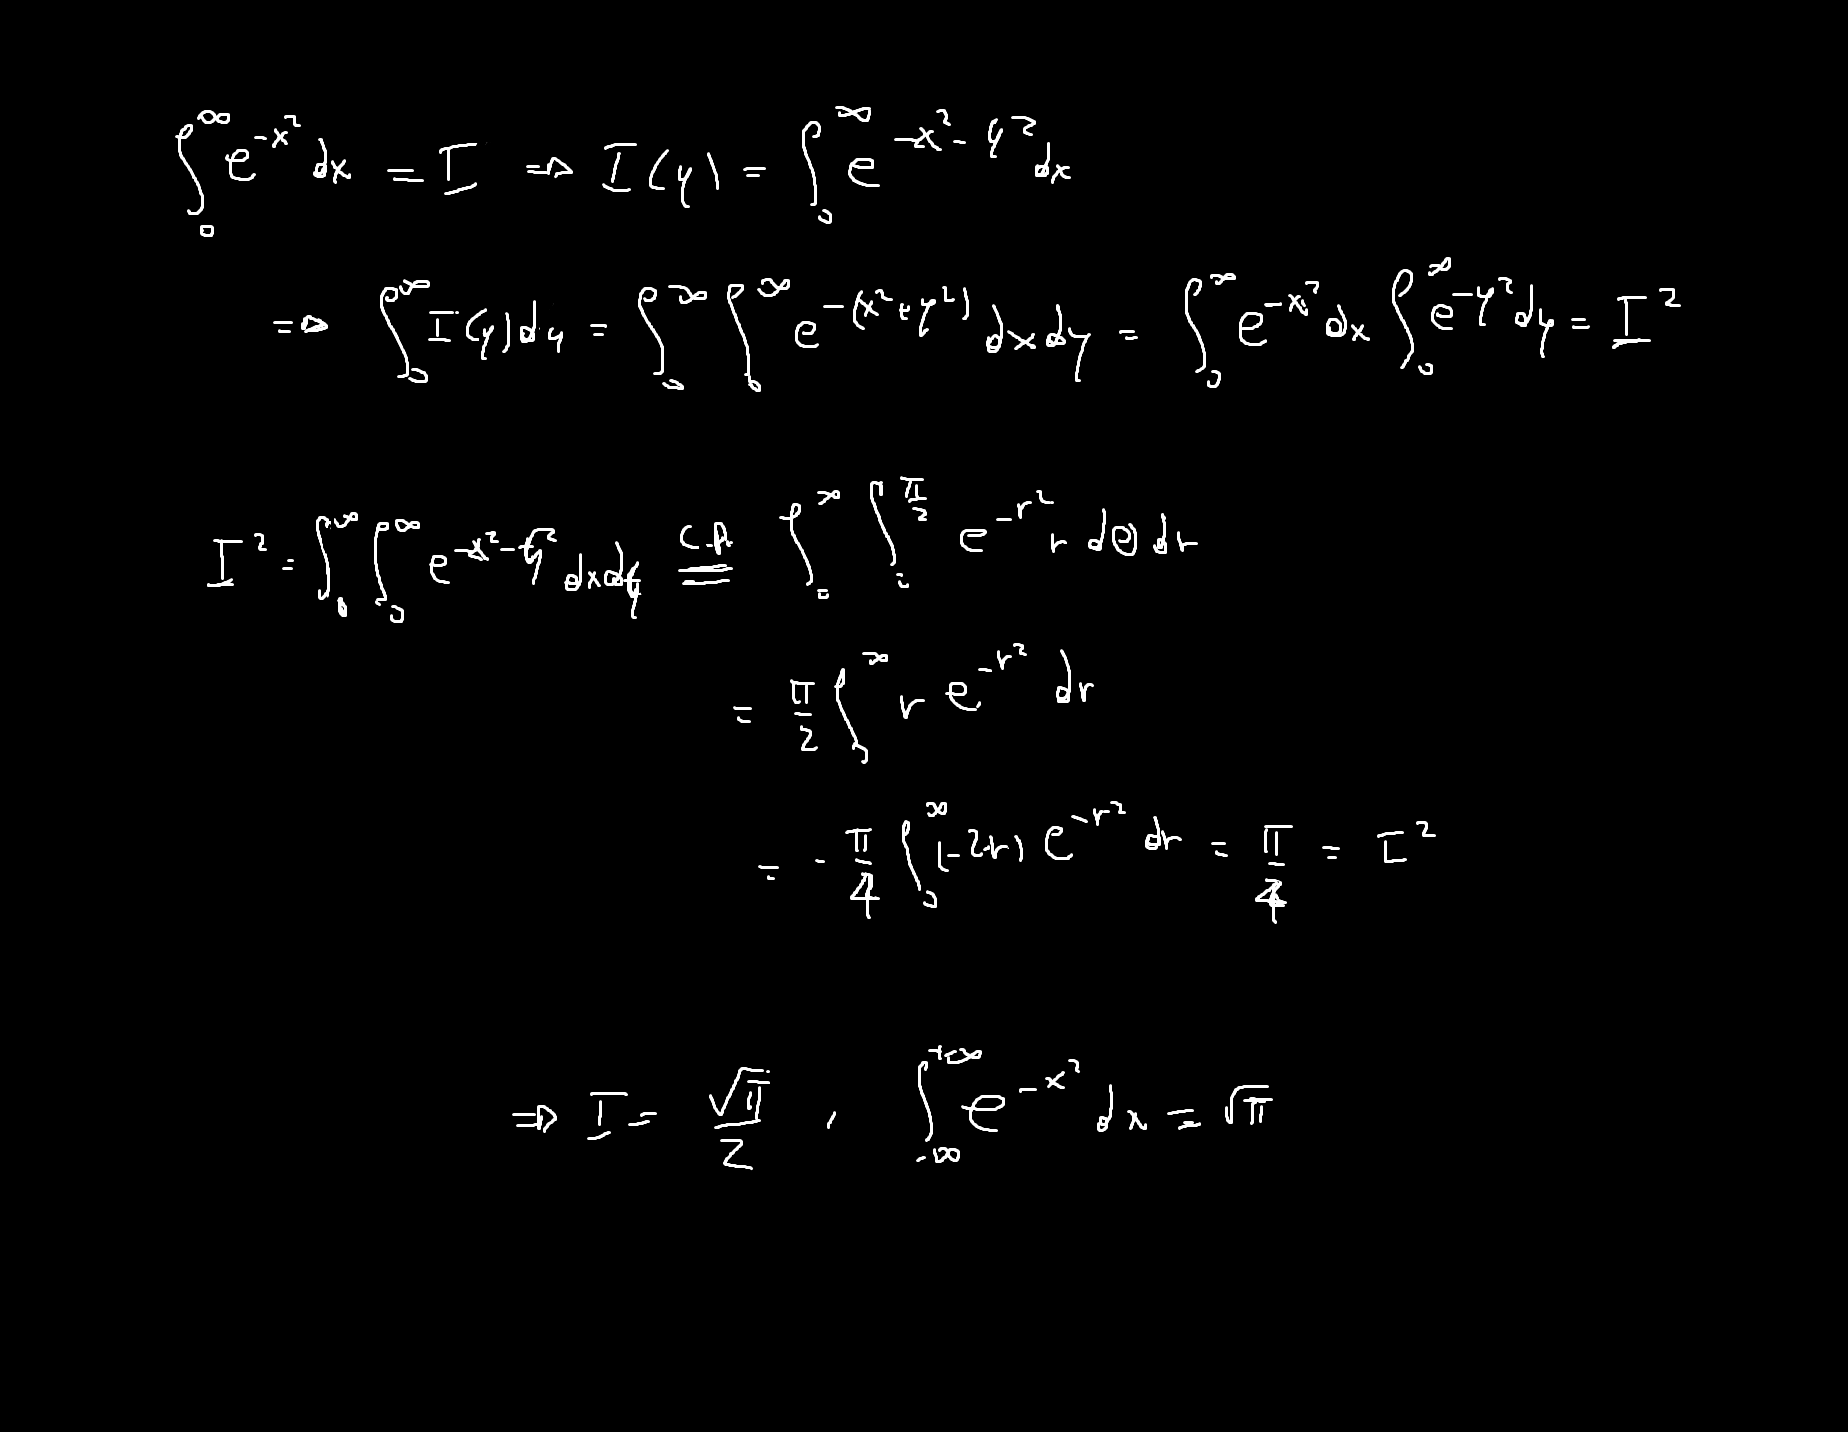 ∫₀^∞ e^{-x²} dx = I ⇒ I(y) = ∫₀^∞ e^{-x²-y²} dx
⇒ ∫₀^∞ I(y)dy = ∫₀^∞ ∫₀^∞ e^{-(x²+y²)} dxdy = ∫₀^∞ e^{-x²} dx ∫₀^∞ e^{-y²} dy = I²
I² = ∫₀^∞ ∫₀^∞ e^{-x²-y²} dxdy \overset{C.P.}{=} ∫₀^∞ ∫₀^{π/2} e^{-r²} r dθ dr
= π/2 ∫₀^∞ r e^{-r²} dr
= -π/4 ∫₀^∞ (-2r) e^{-r²} dr = π/4 = I²
⇒ I = √π/2 , ∫_{-∞}^{+∞} e^{-x²} dx = √π